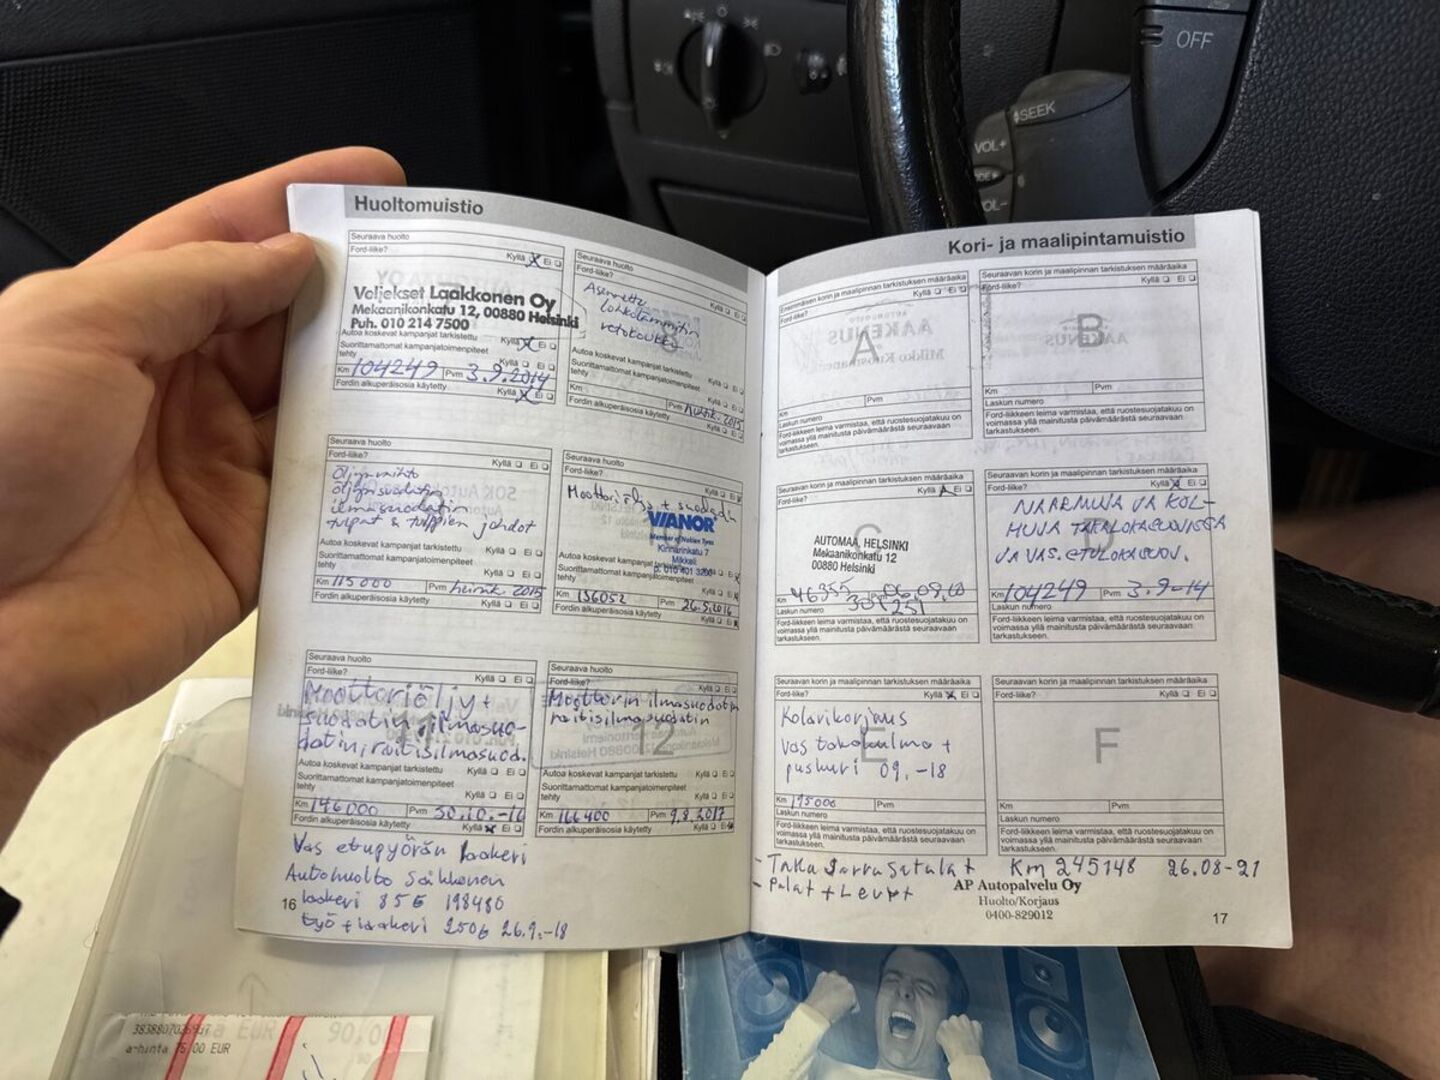 Huoltomuistio
Seuraava huolto
Ford-liike? Kyllä Ei
Veljekset Laakkonen Oy
Mekaanikonkatu 12, 00880 Helsinki
Puh. 010 214 7500
Autoa koskevat kampanjat tarkistettu Kyllä Ei
Suorittamattomat kampanjatoimenpiteet
tehty Kyllä Ei
Km 104249 Pvm 3.9.2014
Fordin alkuperäisosia käytetty Kyllä Ei
Seuraava huolto
Ford-liike? Kyllä Ei
Asennettu
lohkolämmitin
8
Autoa koskevat kampanjat tarkistettu Kyllä Ei
Suorittamattomat kampanjatoimenpiteet
tehty Kyllä Ei
Km Pvm 2015
Fordin alkuperäisosia käytetty Kyllä Ei
Seuraava huolto
Ford-liike? Kyllä Ei
Öljynvaihto
öljynsuodatin
ilmasuodatin
tulpat & tulppien johdot
Autoa koskevat kampanjat tarkistettu Kyllä Ei
Suorittamattomat kampanjatoimenpiteet
tehty Kyllä Ei
Km 115000 Pvm heinäk. 2015
Fordin alkuperäisosia käytetty Kyllä Ei
Seuraava huolto
Ford-liike? Kyllä Ei
Moottoriöljy + suodatin
VIANOR
Member of Nokian Tyres
Kinnarinkatu 7
Mikkeli
p. 010 401 3200
Autoa koskevat kampanjat tarkistettu
Suorittamattomat kampanjatoimenpiteet
tehty Kyllä Ei
Km 136052 Pvm 26.5.2016
Fordin alkuperäisosia käytetty Kyllä Ei
Seuraava huolto
Ford-liike? Kyllä Ei
Moottoriöljy +
suodatin, ilmasuo-
datin, raitisilmasuod.
11
Autoa koskevat kampanjat tarkistettu Kyllä Ei
Suorittamattomat kampanjatoimenpiteet
tehty Kyllä Ei
Km 146000 Pvm 30.10.-16
Fordin alkuperäisosia käytetty Kyllä Ei
Seuraava huolto
Ford-liike? Kyllä Ei
Moottorin ilmasuodatin
raitisilmasuodatin
12
Autoa koskevat kampanjat tarkistettu Kyllä Ei
Suorittamattomat kampanjatoimenpiteet
tehty Kyllä Ei
Km 166400 Pvm 9.8.2017
Fordin alkuperäisosia käytetty Kyllä Ei
Vas etupyörän laakeri
Autohuolto Säkkönen
laakeri 85€ 198480
työ + laakeri 250€ 26.9.-18
16
Kori- ja maalipintamuistio
Ensimmäisen korin ja maalipinnan tarkistuksen määräaika
Ford-liike? Kyllä Ei
A
Km Pvm
Laskun numero
Ford-liikkeen leima varmistaa, että ruostesuojatakuu on
voimassa yllä mainitusta päivämäärästä seuraavaan
tarkastukseen.
Seuraavan korin ja maalipinnan tarkistuksen määräaika
Ford-liike? Kyllä Ei
B
Km Pvm
Laskun numero
Ford-liikkeen leima varmistaa, että ruostesuojatakuu on
voimassa yllä mainitusta päivämäärästä seuraavaan
tarkastukseen.
Seuraavan korin ja maalipinnan tarkistuksen määräaika
Ford-liike? Kyllä Ei
C
AUTOMAA, HELSINKI
Mekaanikonkatu 12
00880 Helsinki
Km 46355 Pvm 06.09.10
Laskun numero
Ford-liikkeen leima varmistaa, että ruostesuojatakuu on
voimassa yllä mainitusta päivämäärästä seuraavaan
tarkastukseen.
Seuraavan korin ja maalipinnan tarkistuksen määräaika
Ford-liike? Kyllä Ei
D
NAARMUJA JA KOL-
HUJA TAKALOKASUOJISSA
JA VAS. ETULOKASUOJ.
Km 104249 Pvm 3.9-14
Laskun numero
Ford-liikkeen leima varmistaa, että ruostesuojatakuu on
voimassa yllä mainitusta päivämäärästä seuraavaan
tarkastukseen.
Seuraavan korin ja maalipinnan tarkistuksen määräaika
Ford-liike? Kyllä Ei
Kolarikorjaus
vas takakulma +
puskuri 09.-18
E
Km 195000 Pvm
Laskun numero
Ford-liikkeen leima varmistaa, että ruostesuojatakuu on
voimassa yllä mainitusta päivämäärästä seuraavaan
tarkastukseen.
Seuraavan korin ja maalipinnan tarkistuksen määräaika
Ford-liike? Kyllä Ei
F
Km Pvm
Laskun numero
Ford-liikkeen leima varmistaa, että ruostesuojatakuu on
voimassa yllä mainitusta päivämäärästä seuraavaan
tarkastukseen.
- Taka Jarru Satulat Km 245148 26.08-21
- Palat + Levyt
AP Autopalvelu Oy
Huolto/Korjaus
0400-829012
17
OFF
SEEK
VOL+
VOL-
EUR 90,00
a-hinta 75.00 EUR